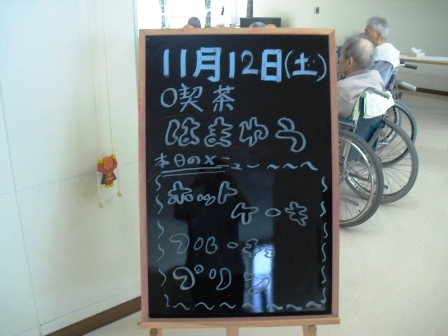 11月12日(土)
○喫茶
はまゆう
本日のメニュー～～～
ホット
ケーキ
フルーチェ
プリン